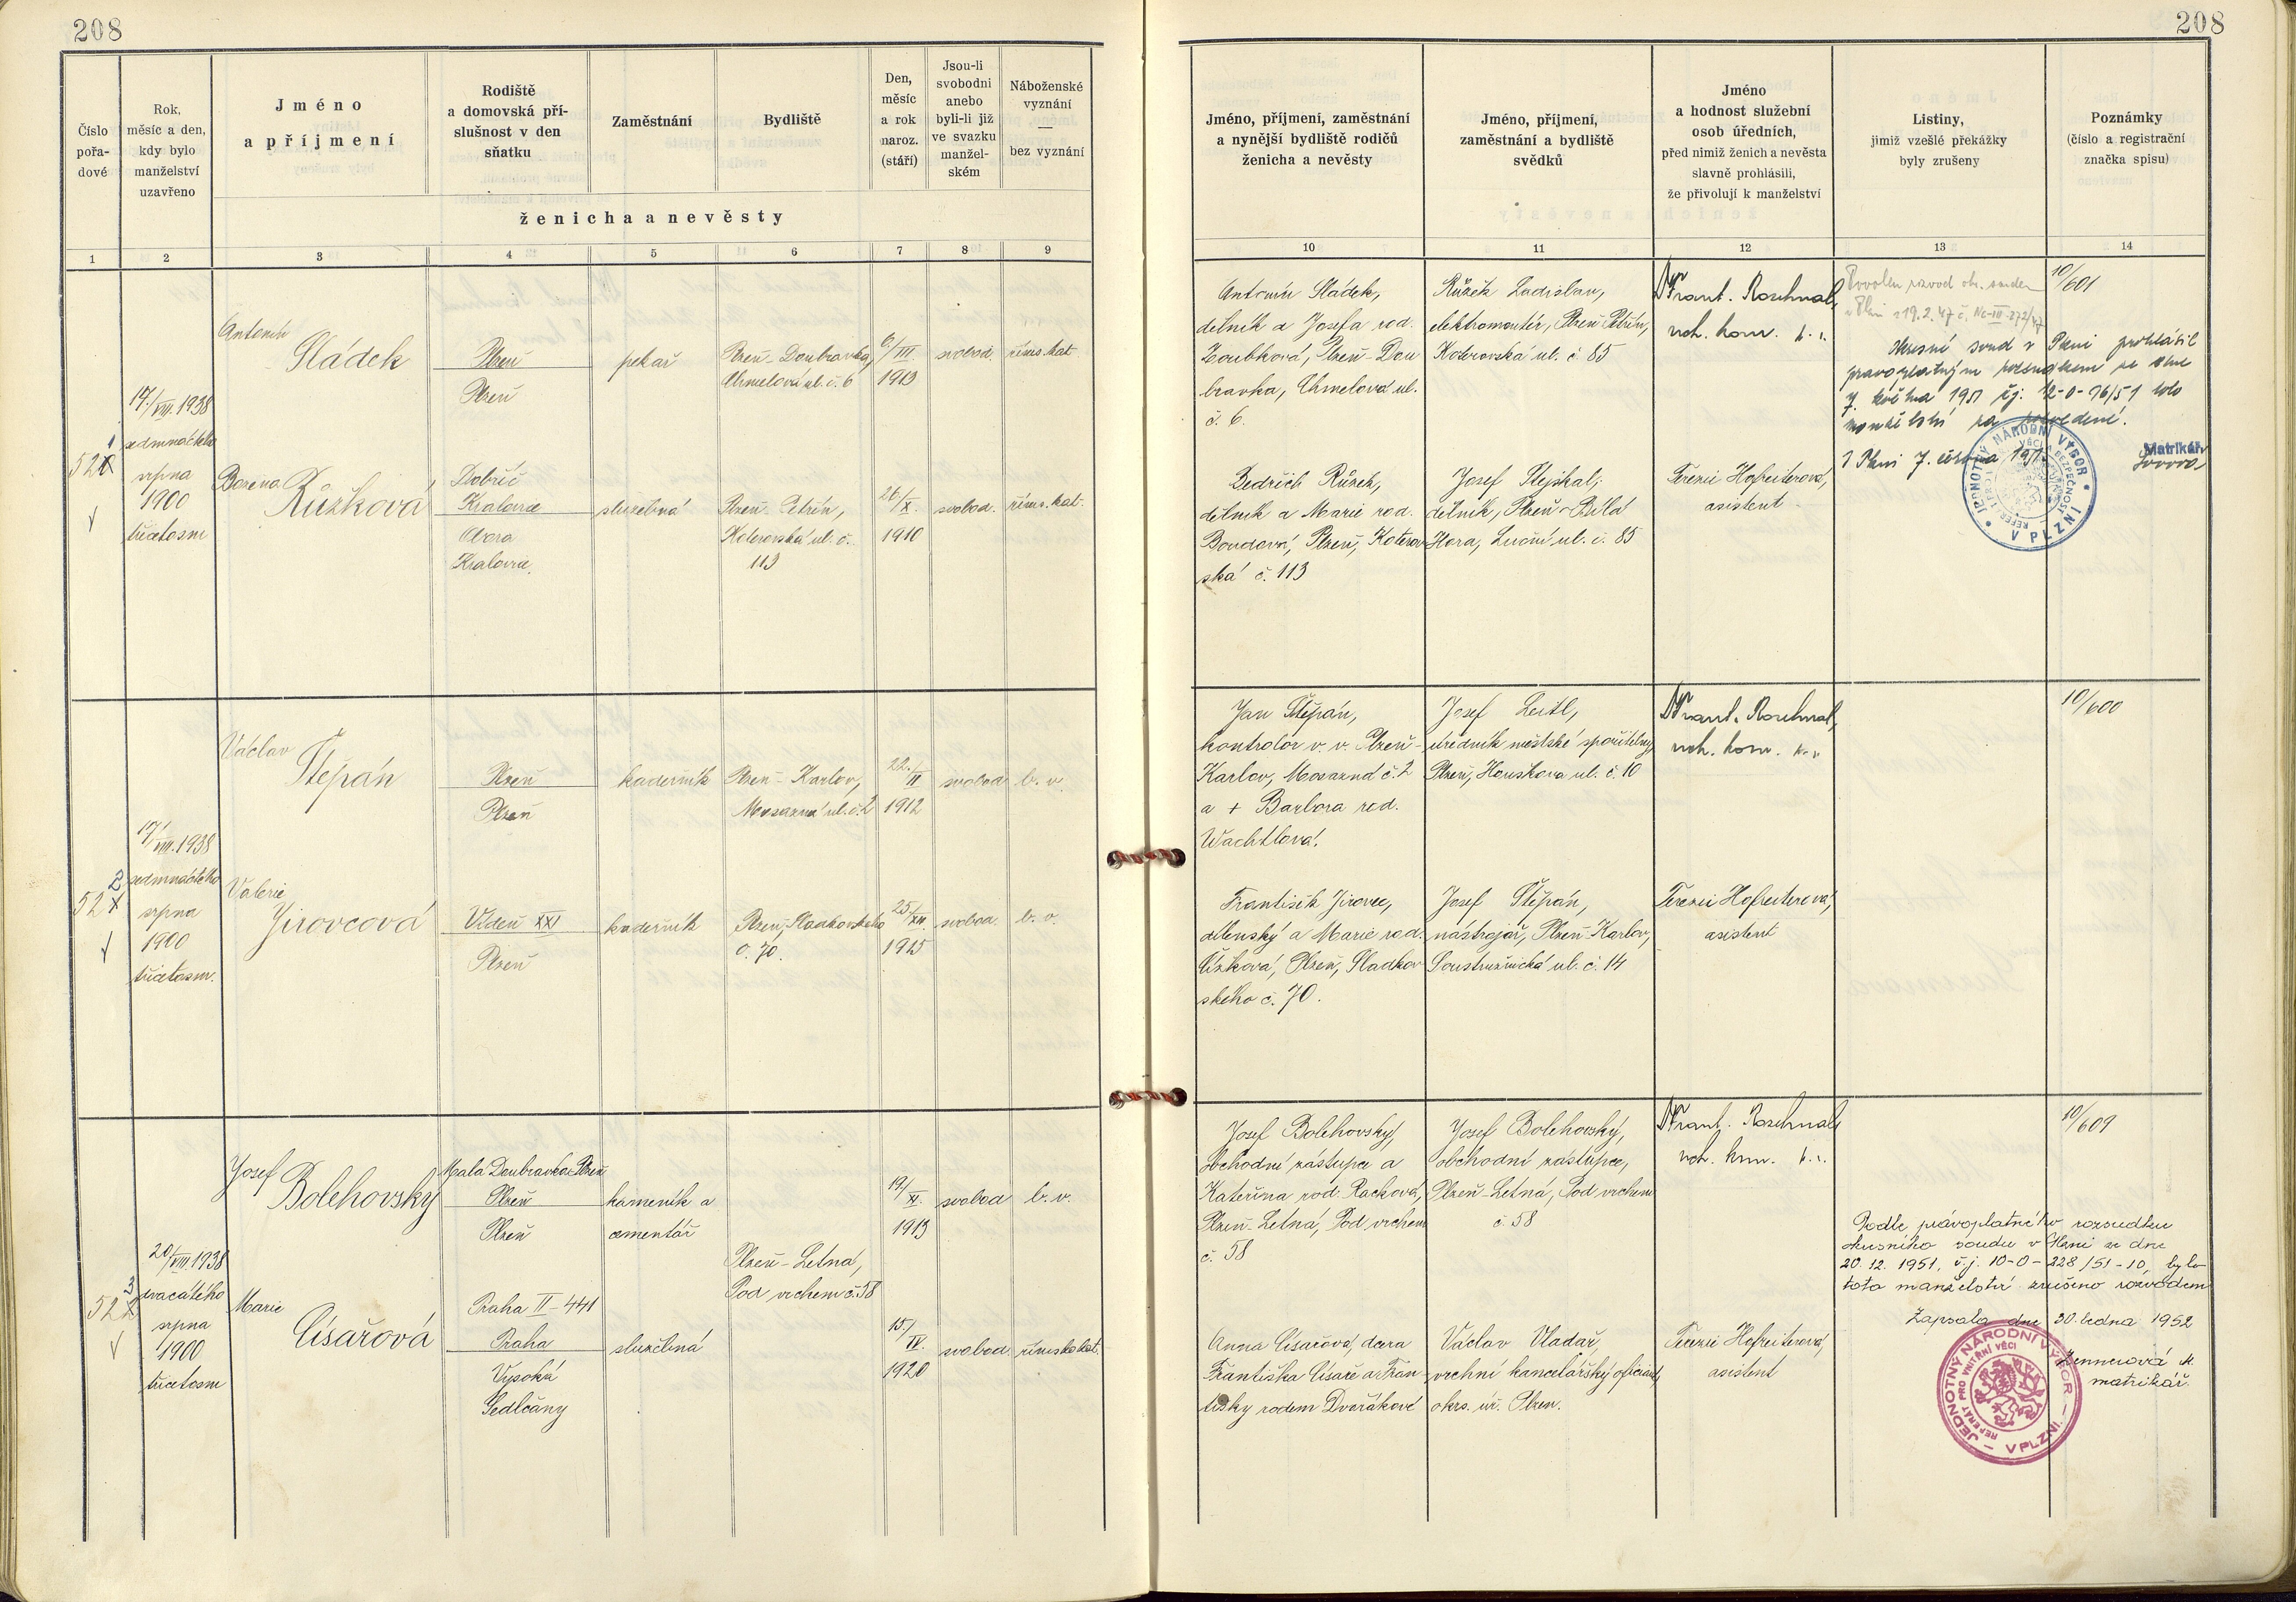 208
208
Číslo pořa- dové
Rok, měsíc a den, kdy bylo manželství uzavřeno
Jméno a příjmení
Rodiště a domovská pří- slušnost v den sňatku
Zaměstnání
Bydliště
Den, měsíc a rok naroz. (stáří)
Jsou-li svobodni anebo byli-li již ve svazku manžel- ském
Náboženské vyznání — bez vyznání
ženicha a nevěsty
Jméno, příjmení, zaměstnání a nynější bydliště rodičů ženicha a nevěsty
Jméno, příjmení, zaměstnání a bydliště svědků
Jméno a hodnost služební osob úředních, před nimiž ženich a nevěsta slavně prohlásili, že přivolují k manželství
Listiny, jimiž vzešlé překážky byly zrušeny
Poznámky (číslo a registrační značka spisu)
1 2 3 4 5 6 7 8 9 10 11 12 13 14
521
17./VIII. 1938
sedmnáctého
srpna
1900
třicetosm
Antonín
Sládek
Plzeň
Plzeň
pekař
Plzeň-Doubravka,
Chmelová ul. č. 6
6./III.
1913
svobod.
říms. kat.
Božena
Růžková
Dobříč
Kralovice
Obora
Kralovice
služebná
Plzeň-Petrín,
Koterovská ul. č.
113
26./X.
1910
svobod.
říms. kat.
Antonín Sládek,
dělník a Josefa rod.
Zoubková, Plzeň-Dou
bravka, Chmelová ul.
č. 6.
Bedřich Růžek,
dělník a Marie rod.
Boudová, Plzeň, Koterov
ská č. 113
Růžek Ladislav,
elektromontér, Plzeň Petrín,
Koterovská ul. č. 85
Josef Stejskal,
dělník, Plzeň-Bílá
Hora, Luční ul. č. 85
Dr Frant. Roschnal,
vrch. kom.
Terezie Hofreiterová,
asistent
Povolen rozvod okr. soudem
v Plzni z 19. 2. 47 č. Nc-III-272/47
10/601
Okresní soud v Plzni prohlásil
pravoplatným rozsudkem ze dne
7. května 1951 čj: 12-0-76/51 toto
manželství za rozvedené.
V Plzni 7. června 1951
Matrikář:
JEDNOTNÝ NÁRODNÍ VÝBOR V PLZNI
522
17./VIII. 1938
sedmnáctého
srpna
1900
třicetosm.
Václav
Štěpán
Plzeň
Plzeň
kadeřník
Plzeň-Karlov,
Mosazná ul. č. 2
22./II
1912
svobod
b. v.
Valerie
Jirovcová
Vídeň XXI
Plzeň
kadeřník
Plzeň, Sladkovského
č. 70.
25./XII.
1915
svobod.
b. v.
Jan Štěpán,
kontrolor v. v. Plzeň-
Karlov, Mosazná č. 2
a + Barbora rod.
Wachtlová.
František Jirovec,
dílenský a Marie rod.
Čížková, Plzeň, Sladkov
ského č. 70.
Josef Leitl,
úředník městské spořitelny,
Plzeň, Houškova ul. č. 10
Josef Štěpán,
nástrojař, Plzeň-Karlov,
Soustružnická ul. č. 14
Dr Frant. Roschnal,
vrch. kom.
Terezie Hofreiterová,
asistent
10/600
523
20/VIII. 1938
dvacátého
srpna
1900
třicetosm
Josef
Bolehovský
Malá Doubravka Plzeň
Plzeň
Plzeň
kameník a
cementář
19./XI.
1913
svobod
b. v.
Plzeň-Letná,
Pod vrchem č. 58
Marie
Císařová
Praha II-441
Praha
Vysoká
Sedlčany
služebná
15./IV.
1920
svobod.
římskokat.
Josef Bolehovský,
obchodní zástupce a
Kateřina rod. Racková,
Plzeň-Letná, Pod vrchem
č. 58
Anna Císařová, dcera
Františka Císaře a Fran-
tišky rodem Dvořákové
Josef Bolehovský,
obchodní zástupce,
Plzeň-Letná, Pod vrchem
č. 58
Václav Vladař,
vrchní kancelářský oficiant,
okrs. úř. Plzeň.
Dr Frant. Roschnal,
vrch. kom.
Terezie Hofreiterová,
asistent
10/609
Podle právoplatného rozsudku
okresního soudu v Plzni ze dne
20. 12. 1951, č.j. 10-0-228/51-10, bylo
toto manželství zrušeno rozvodem
Zapsala dne 30. ledna 1952
matrikář.
JEDNOTNÝ NÁRODNÍ VÝBOR V PLZNI
REFERÁT PRO VNITŘNÍ VĚCI